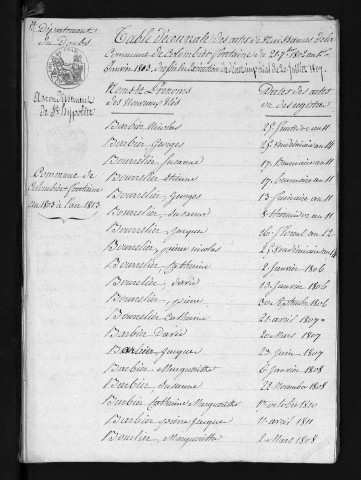 Département
du Doubs
Arrondissement
de St. hypolite
Commune de
Colombier-fontaine
an 1803 à l'an 1813
Table décennale des actes de Naissances de la
Commune de Colombier fontaine du 21 7bre 1802 au 1er
Janvier 1813, Décret impérial du 20 Juillet 1807.
Noms & Prénoms
des Nouveaux Nés
Dates des actes
ou des registres
Barbier Nicolas
an 11
Barbier Georges
25 vendémiaire an 14
Bourrelier Susanne
17 Brumaire an 11
Bourrelier
17 Brumaire an 11
Bourrelier Georges
13 frimaire an 11
Bourrelier, Susanne
8 thermidor an 11
Bourrelier Jacques
26 floréal an 12
Bourrelier, pierre nicolas
25 vendémiaire an 14
Bourrelier Catherine
2 Janvier 1806
Bourrelier, David
13 Janvier 1806
Bourrelier, pierre
30 1806
Bourrelier Catherine
21 avril 1807
Barbier David
20 Mars 1807
Barbier Jacques
23 Juin 1807
Barbier Marguerithe
6 Janvier 1808
Barbier Susanne
22 Novembre 1808
Barbier Catherine Marguerithe
1er octobre 1810
Barbier pierre Jacques
1er avril 1811
Bourlier Marguerithe
2 Mars 1808